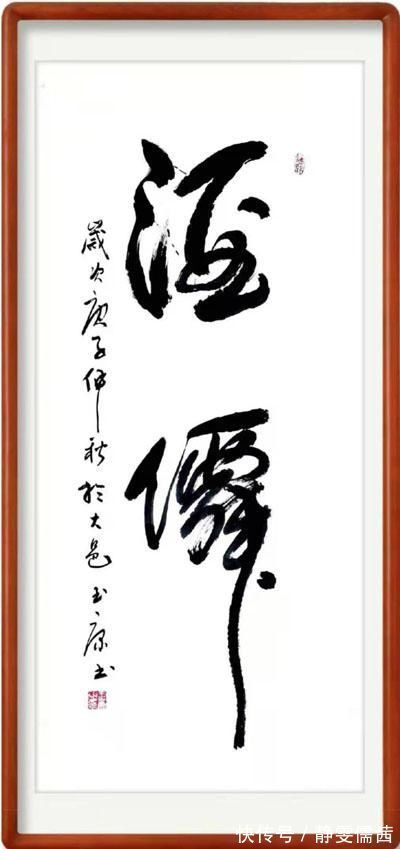 酒
僊
歲次庚子仲秋於大邑玉康书
快传号 / 静斐儒茜